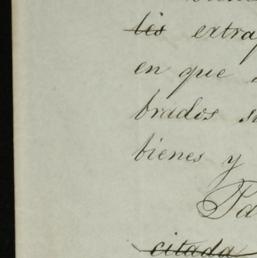 les extra
en que
brados
bienes y
Pa
citada